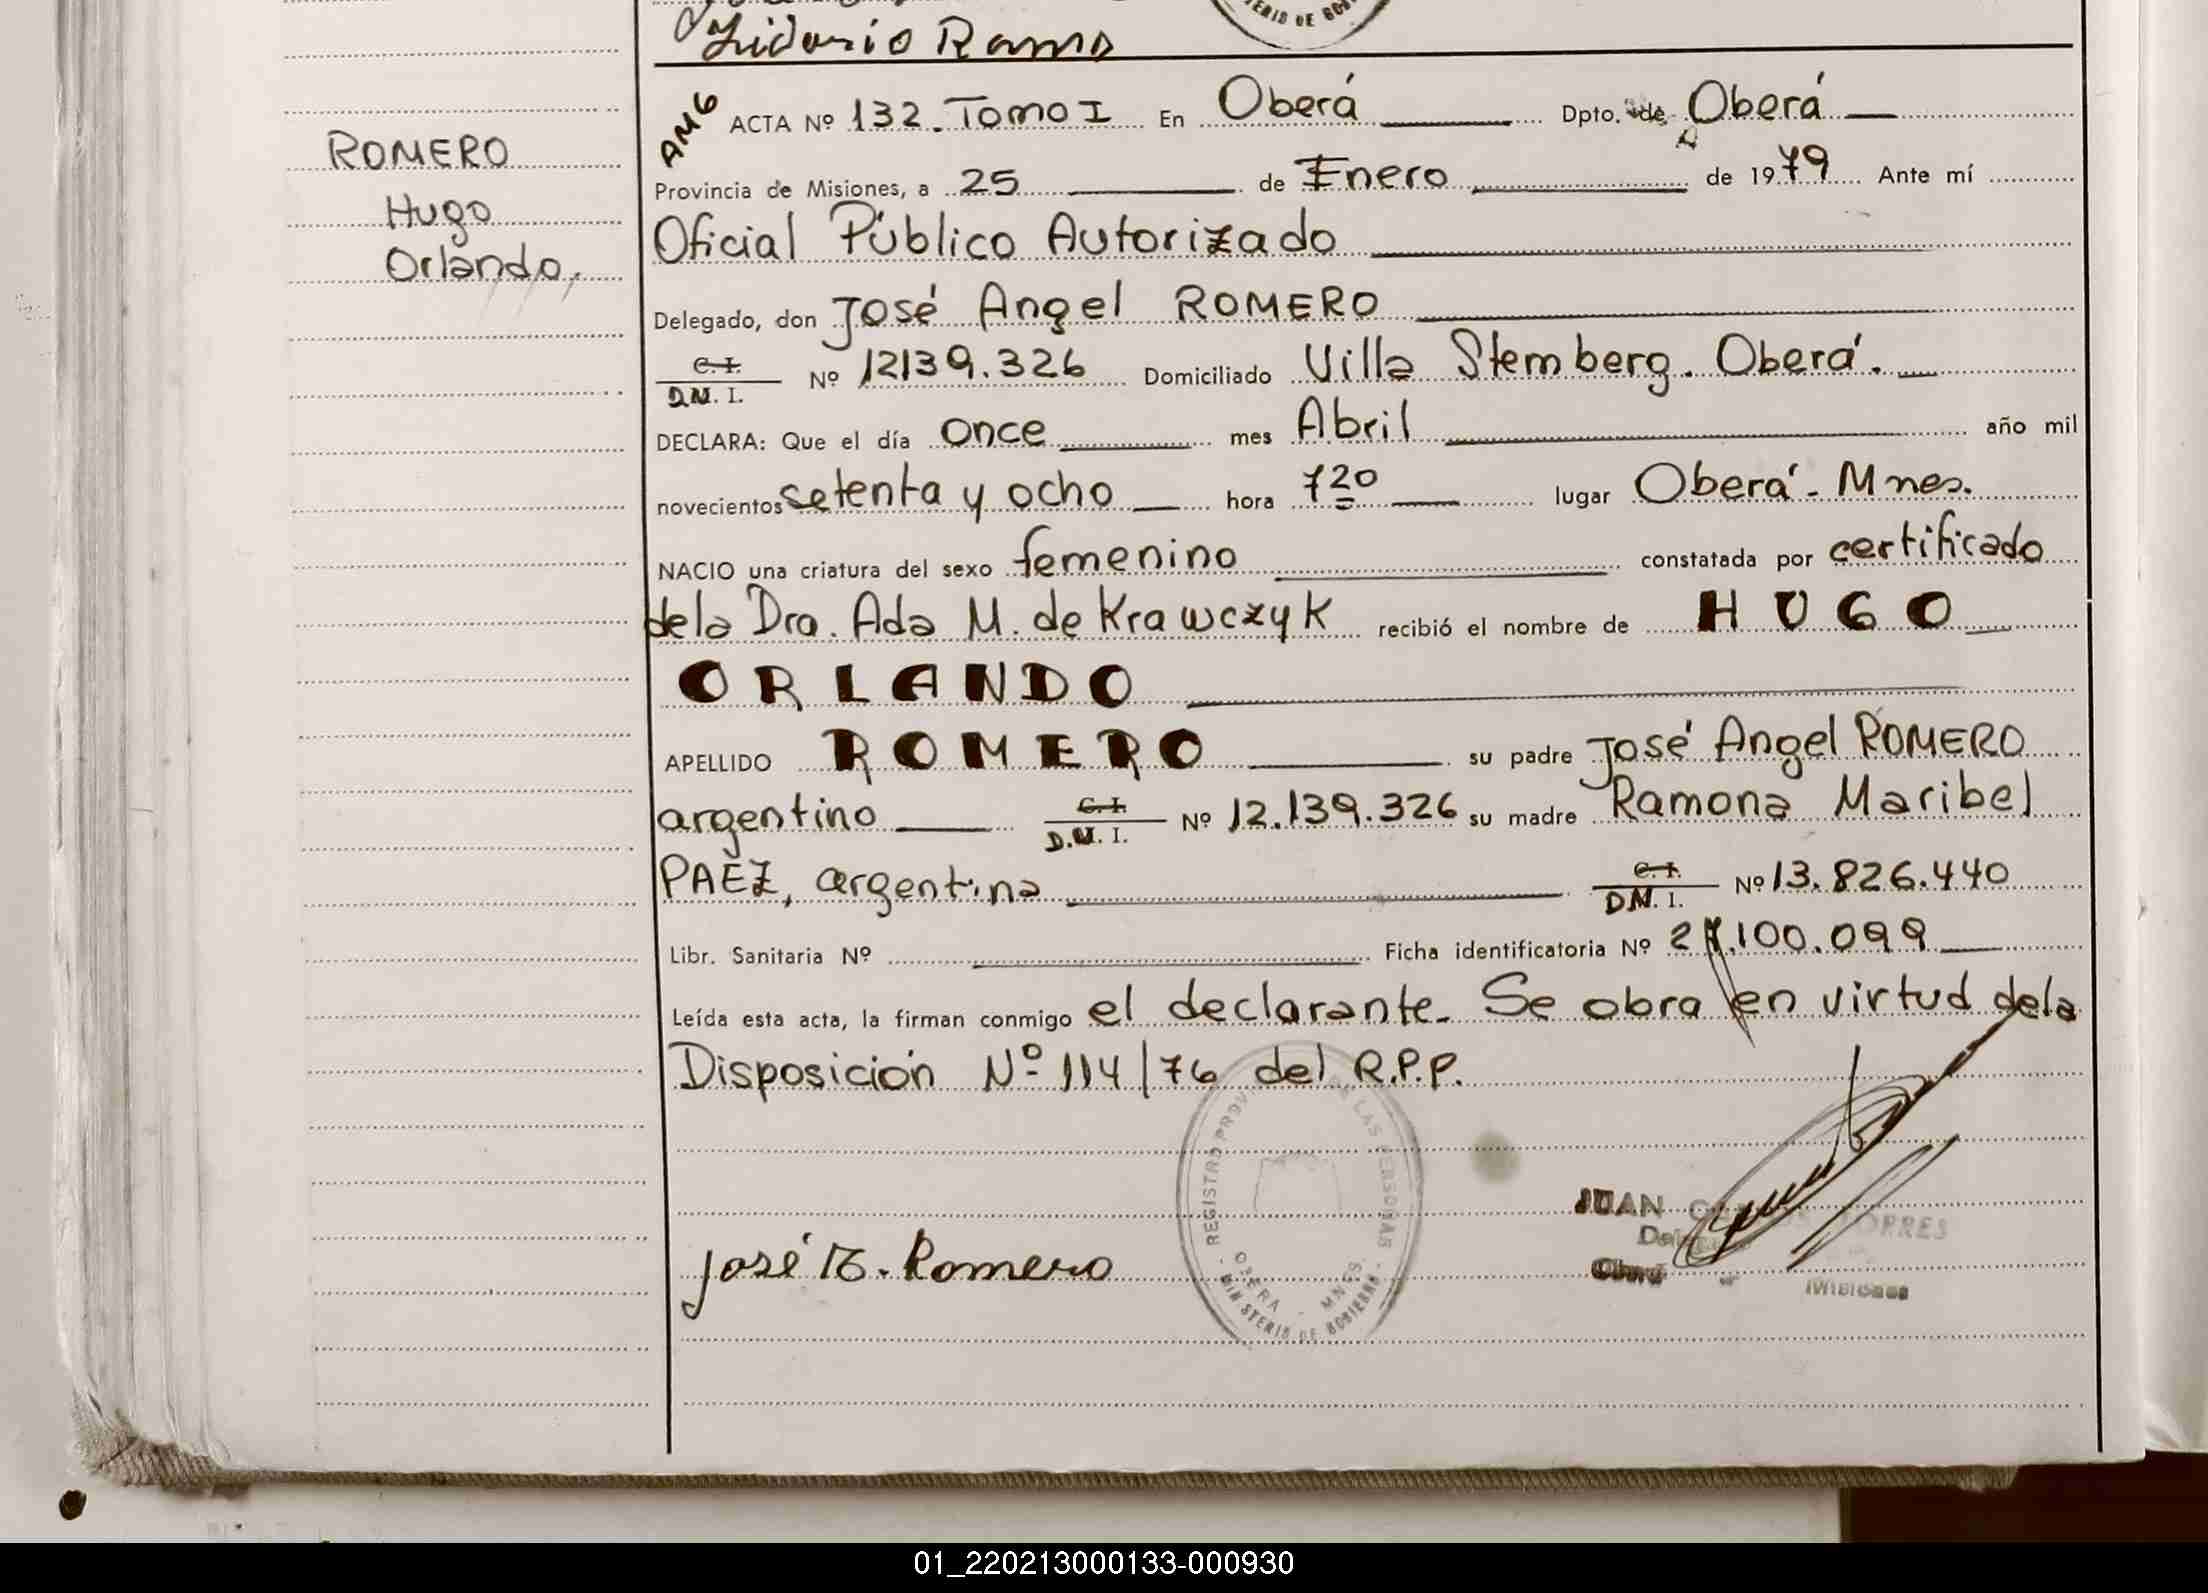 Ramos
MINISTERIO DE GOBIERNO
ROMERO
Hugo
Orlando,
AMG
ACTA Nº 132. Tomo I En Oberá Dpto. de Oberá
Provincia de Misiones, a 25 de Enero de 1979 Ante mí
Oficial Público Autorizado
Delegado, don José Angel ROMERO
C.I. D.N.I. Nº 12139.326 Domiciliado Villa Stemberg. Oberá.
DECLARA: Que el día once mes Abril año mil
novecientos setenta y ocho hora 7 20 lugar Oberá - Mnes.
NACIO una criatura del sexo femenino constatada por certificado
dela Dra. Ada M. de Krawczyk recibió el nombre de HUGO
ORLANDO
APELLIDO ROMERO su padre José Angel ROMERO
argentino C.I. D.N.I. Nº 12.139.326 su madre Ramona Maribel
PAEZ, argentina C.I. D.N.I. Nº 13.826.440
Libr. Sanitaria Nº Ficha identificatoria Nº 27.100.099
Leída esta acta, la firman conmigo el declarante. Se obra en virtud dela
Disposición Nº 114/76 del R.P.P.
REGISTRO PROV. LAS PERSONAS
OBERA - MNES.
MINISTERIO DE GOBIERNO
José A. Romero
JUAN TORRES
Misiones
01_220213000133-000930